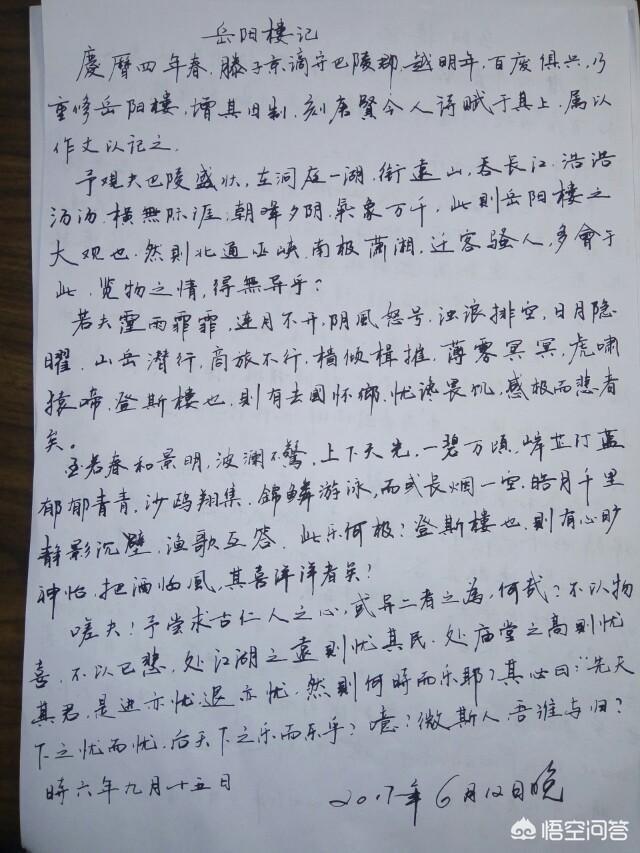 岳阳楼记
慶曆四年春.滕子京谪守巴陵郡.越明年,百废俱兴,乃
重修岳阳樓,增其旧制.刻唐賢今人诗赋于其上.属以
作文以记之.
予观夫巴陵盛状,在洞庭一湖.銜遠山,吞长江.浩浩
汤汤.横無际涯;朝晖夕阴.氣象万千,此則岳阳樓之
大观也.然則北通巫峡.南极潇湘,迁客骚人,多會于
此.览物之情,得無异乎?
若夫霪雨霏霏,连月不开,阴風怒号.浊浪排空,日月隐
曜.山岳潜行,商旅不行,樯倾楫摧.薄雾冥冥,虎啸
猿啼.登斯樓也.則有去國怀鄉.忧谗畏讥,感极而悲者
矣。
至若春和景明,波澜不驚,上下天光,一碧万頃,岸芷汀蓝
郁郁青青,沙鸥翔集.錦鱗游泳,而或长烟一空.皓月千里
静影沉壁.渔歌互答.此乐何极?登斯樓也.則有心旷
神怡.把酒临風,其喜洋洋者矣!
嗟夫!予尝求古仁人之心,或异二者之為,何哉?不以物
喜.不以己悲.处江湖之遠則忧其民.处庙堂之高則忧
其君.是进亦忧.退亦忧.然則何時而乐耶?其必曰:"先天
下之忧而忧.后天下之乐而乐乎?噫?微斯人.吾谁与归?
時六年九月十五日
2017年6月12日晚
悟空问答